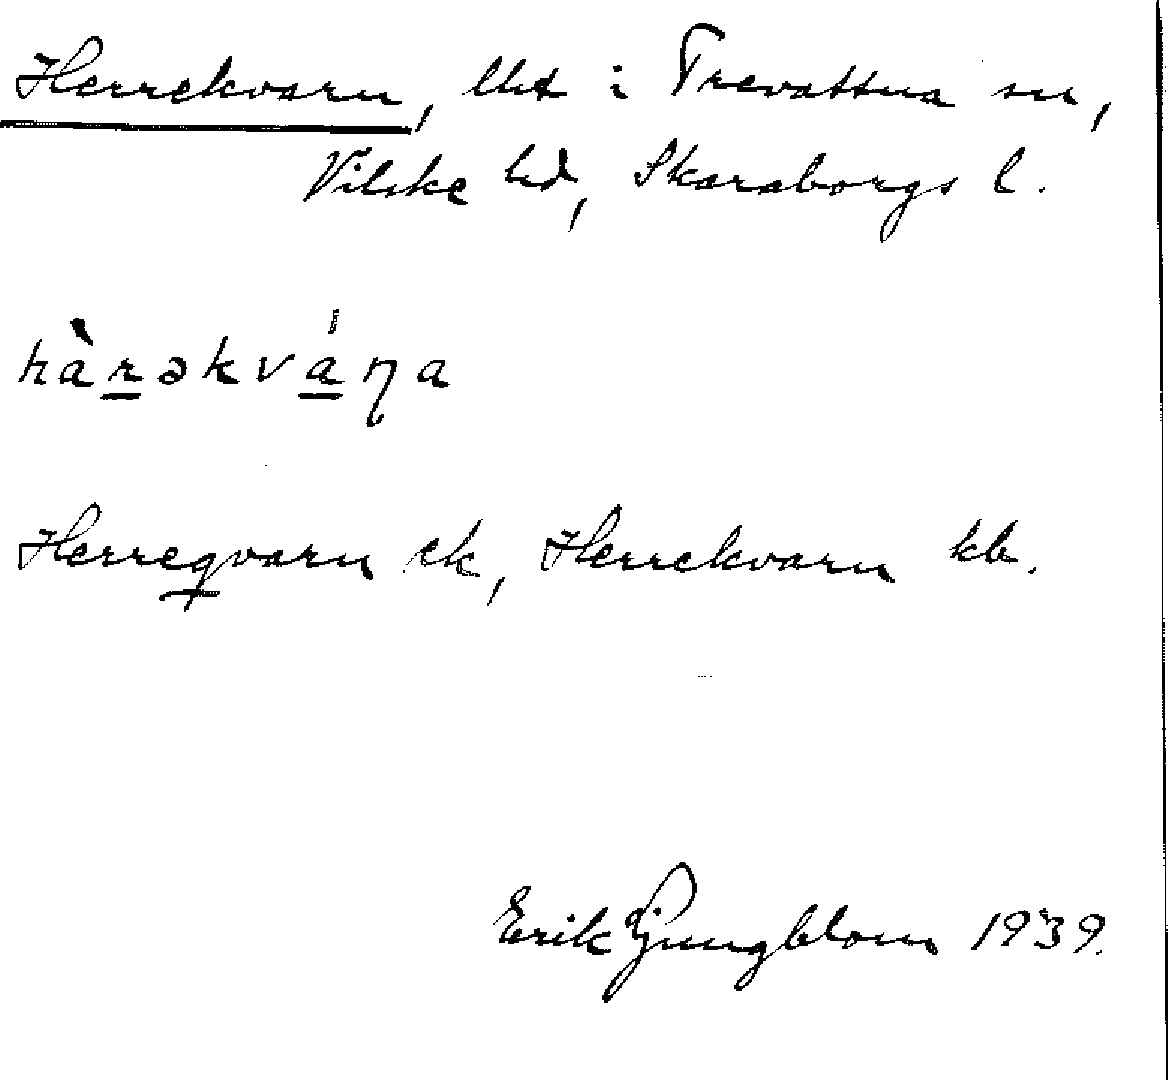 Herrekvarn, lht i Trevattna sn,
Vilske hd, Skaraborgs l.
hàrəkváꞃa
Herreqvarn ek, Herrekvarn kb.
Erik Ljungblom 1939.